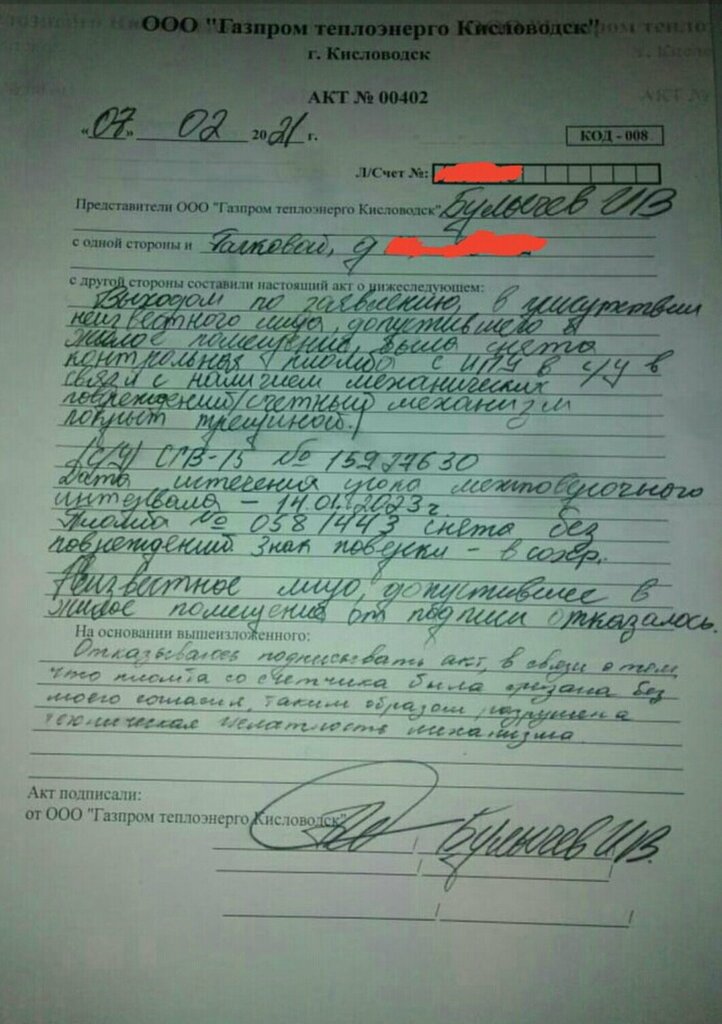 ООО "Газпром теплоэнерго Кисловодск"
г. Кисловодск
АКТ № 00402
«07» 02 2021 г.
КОД - 008
Л/Счет №:
Представители ООО "Газпром теплоэнерго Кисловодск" Булычев ИВ
с одной стороны и
с другой стороны составили настоящий акт о нижеследующем:
Выходом по заявлению, в присутствии
неизвестного лица, допустившего в
жилое помещение, была снята
контрольная пломба с ИПУ в с/у в
связи с наличием механических
повреждений (счетный механизм
покрыт трещиной.)
(с/у) СГВ-15 № 15927630
Дата истечения срока межповерочного
интервала – 14.01.2023 г.
Пломба № 0581443 снята без
повреждений знак поверки – в сохр.
Неизвестное лицо, допустившее в
жилое помещение от подписи отказалось.
На основании вышеизложенного:
Отказываюсь подписывать акт, в связи с тем,
что пломба со счетчика была срезана без
моего согласия, таким образом разрушена
техническая целостность механизма
Акт подписали:
от ООО "Газпром теплоэнерго Кисловодск"
/ Булычев ИВ.